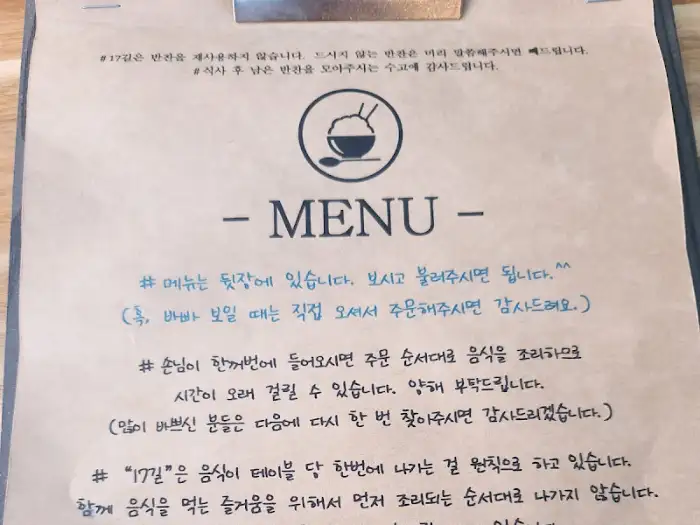 #17길은 반찬을 재사용하지 않습니다. 드시지 않는 반찬은 미리 말씀해주시면 빼드립니다.
#식사 후 남은 반찬을 모아주시는 수고에 감사드립니다.
- MENU -
# 메뉴는 뒷장에 있습니다. 보시고 불러주시면 됩니다.^^
(혹, 바빠 보일 때는 직접 오셔서 주문해주시면 감사드려요.)
# 손님이 한꺼번에 들어오시면 주문 순서대로 음식을 조리하므로
시간이 오래 걸릴 수 있습니다. 양해 부탁드립니다.
(많이 바쁘신 분들은 다음에 다시 한 번 찾아주시면 감사드리겠습니다.)
# "17길"은 음식이 테이블 당 한번에 나가는 걸 원칙으로 하고 있습니다.
함께 음식을 먹는 즐거움을 위해서 먼저 조리되는 순서대로 나가지 않습니다.